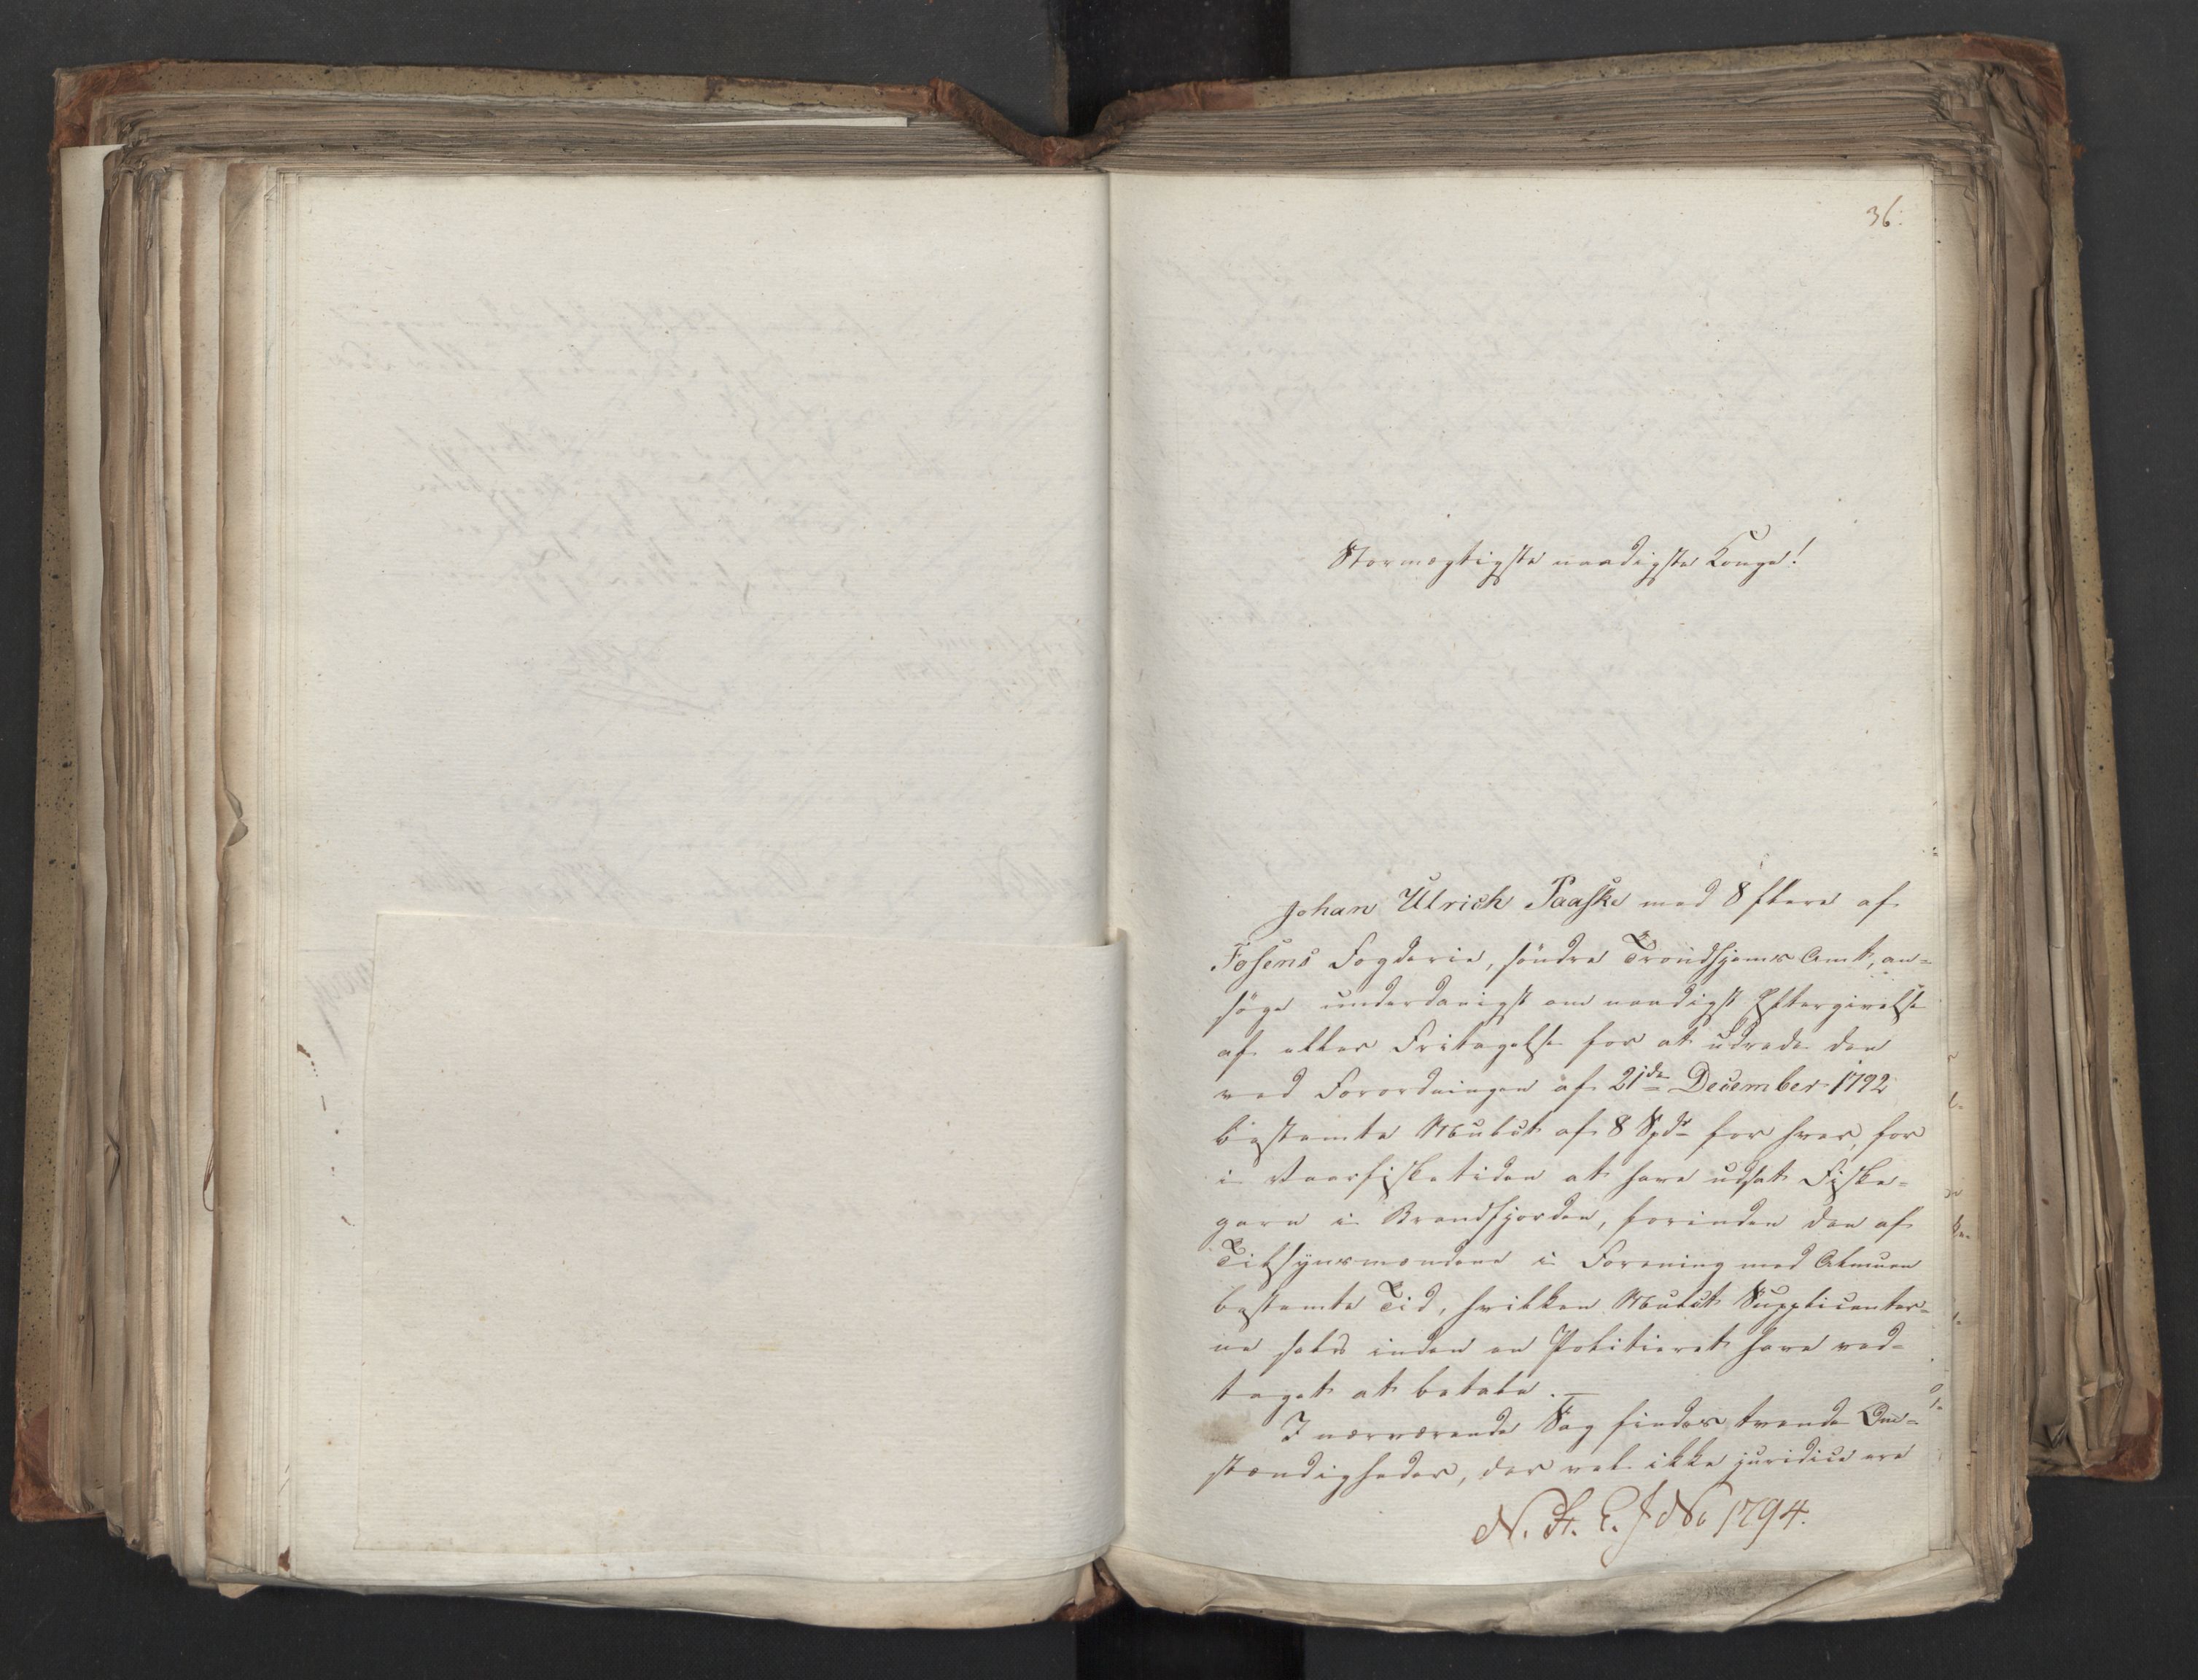 36.
Stormægtigste naadigste Konge!
Johan Ulrich Paaske med 8 flere af
Fosens Fogderie, söndre Trondhjems Amt, an-
söge underdanigst om naadigst Eftergivelse
af eller Fritagelse for at udrede den
ved Forordningen af 21de December 1792
bestemte Mulct af 8 Spdr for hver, for
i Vaarfisketiden at have udsat Fiske-
garn i Brandfjorden, forinden den af
Tilsynsmændene i Forening med Almuen
bestemte Tid, hvilken Mulct Supplicanter-
ne selv inden en Politieret have ved-
taget at betale. —
I nærværende Sag findes tvende Om-
stændigheder, der vel ikke juridice ere
N. A. C. J No 1794.